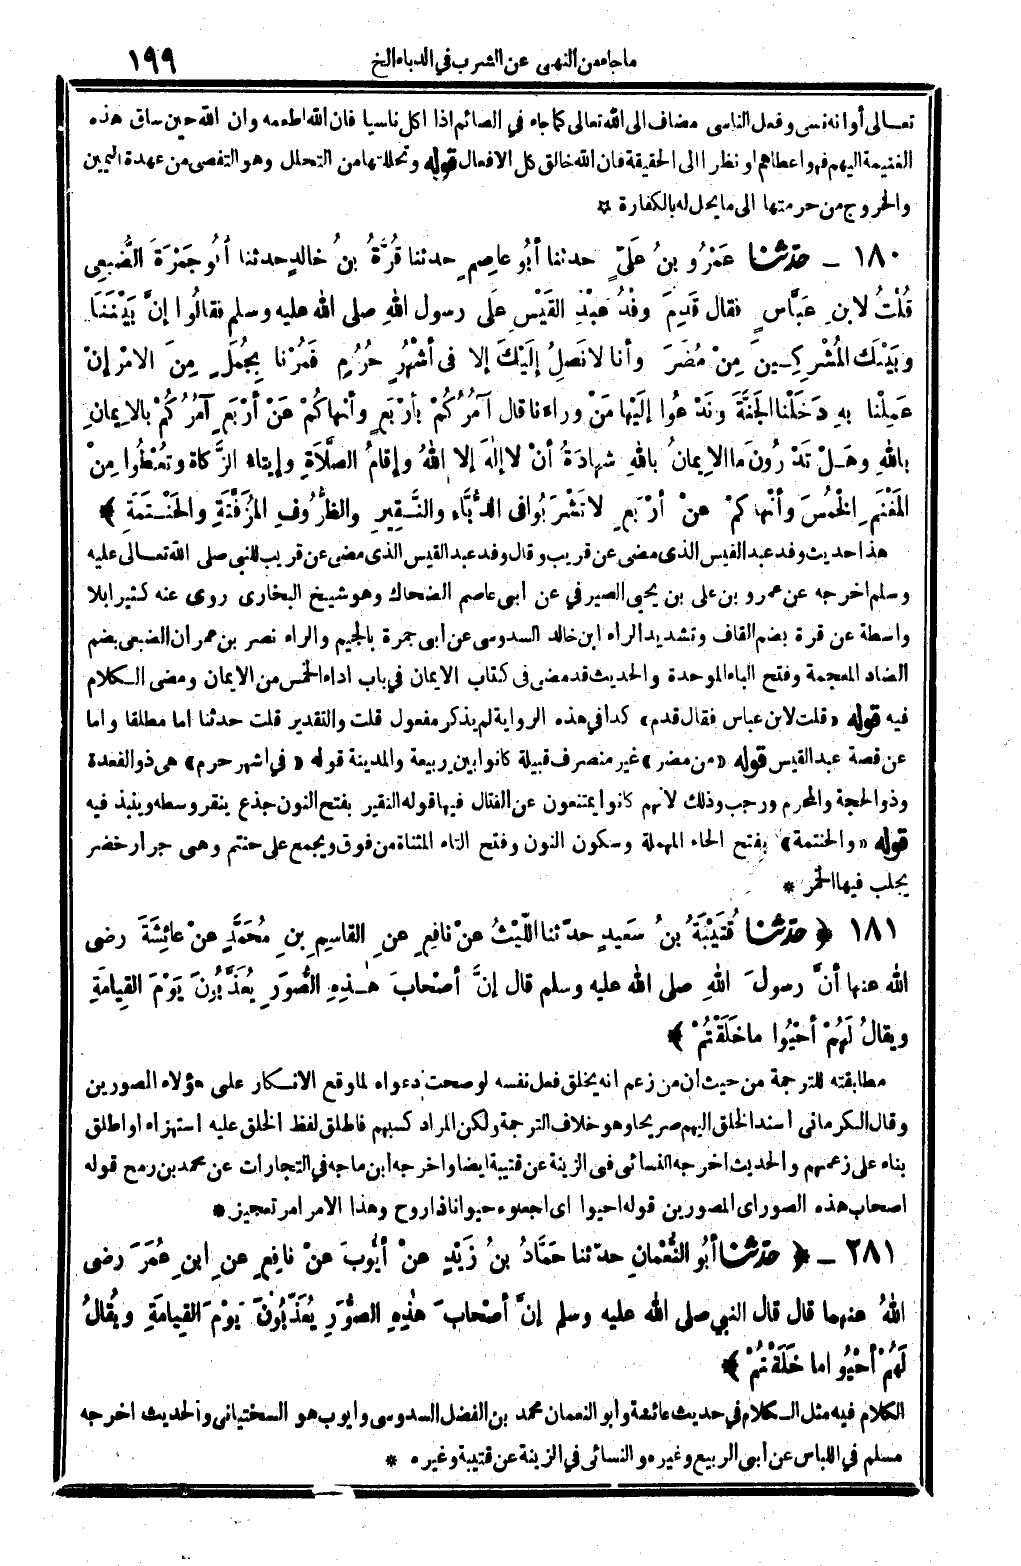 ما جاء من النهى عن الشرب في الدباء الخ ١٩٩
تعـالى أو انه نسى وفعل الناسى مضاف الى الله تعالى كما جاء في الصائم اذا اكل ناسيا فان الله اطعمه وان الله حين ساق هذه
الغنيمة اليهم فهو اعطاهم او نظرا الى الحقيقة فان الله خالق كل الافعال قوله وتحللتها من التحلل وهو التفصى من عهدة اليمين
والخروج من حرمتها الى ما يحل له بالكفارة *
١٨٠ ــ حدّثنا عَمْرُو بنُ عَلِيٍّ حدثنا أبُو عاصِمٍ حدثنا قُرَّةُ بنُ خالِدٍ حدثنا أبُو جَمْرَةَ الضُّبَعِى
قُلْتُ لابنِ عَبَّاسٍ فقال قَدِمَ وفْدُ عَبْدِ القَيْسِ عَلَى رسول اللهِ صلى الله عليه وسلم فقالُوا إنَّ بَيْنَنَا
وبَيْنَكَ المُشْرِكِـينَ مِنْ مُضَرَ وأنا لا نَصِلُ إلَيْكَ إلا فى أشْهُرٍ حُرُمٍ فَمُرْنا بِجُمَلٍ مِنَ الامْرِ إنْ
عَمِلْنا بهِ دَخَلْنا الجَنَّةَ ونَدْعُوا إلَيْها مَنْ وراءنا قال آمُرُكُمْ بأرْبَعٍ وأنهاكُمْ عَنْ أرْبَعٍ آمُرُكُمْ بالإِيمانِ
باللهِ وهَـلْ تَدْرُونَ ما الإِيمانُ باللهِ شهادَةُ أنْ لا إلٰهَ إلا اللهُ وإقامُ الصَّلَاةِ وإيتاءُ الزَّكاةِ وتُعْطُوا مِنْ
المَغْنَمِ الخُمُسَ وأنْهاكمْ عنْ أرْبَعٍ لا تَشْرَبُوا فى الدُّبَّاءِ والنَّـقِيرِ والظُّرُوفِ المُزَفَّتَةِ والحَنْـتَمَةِ ﴾
هذا حديث وفد عبد القيس الذى مضى عن قريب وقال وفد عبد القيس الذى مضى عن قريب للنبي صلى الله تعـالى عليه
وسلم اخرجه عن عمرو بن على بن يحيى الصيرفي عن ابى عاصم الضحاك وهو شيخ البخارى روى عنه كثيرا بلا
واسطة عن قرة بضم القاف وتشديد الراء ابن خالد السدوسى عن ابى جمرة بالجيم والراء نصر بن عمران الضبعى بضم
الضاد المعجمة وفتح الباء الموحدة والحديث قد مضى فى كتاب الايمان في باب اداء الخمس من الايمان ومضى الـكلام
فيه قوله «قلت لابن عباس فقال قدم» كذا في هذه الرواية لم يذكر مفعول قلت والتقدير قلت حدثنا اما مطلقا واما
عن قصة عبد القيس قوله «من مضر» غير منصرف قبيلة كانوا بين ربيعة والمدينة قوله «في اشهر حرم» هى ذو القعدة
وذو الحجة والمحرم ورجب وذلك لانهم كانوا يمتنعون عن القتال فيها قوله النقير بفتح النون جذع ينقر وسطه وينبذ فيه
قوله «والحنتمة» بفتح الحاء المهملة وسكون النون وفتح التاء المثناة من فوق ويجمع على حنتم وهى جرار خضر
يجلب فيها الخمر *
١٨١ ﴿ حدّثنا قُتَيْبَةُ بنُ سَعيدٍ حدّثنا اللَّيْثُ عنْ نافِعٍ عنِ القاسِمِ بنِ مُحَمَّدٍ عنْ عائِشَةَ رضى
الله عنها أنَّ رسولَ اللهِ صلى الله عليه وسلم قال إنَّ أصْحابَ هـٰذِهِ الصُّوَرِ يُعَذَّبُونَ يَوْمَ القِيامَةِ
ويقالُ لَهُمْ أحْيُوا ما خَلَقْتُمْ ﴾
مطابقته للترجمة من حيث ان من زعم انه يخلق فعل نفسه لو صحت دعواه لما وقع الانـكار على هؤلاء المصورين
وقال الـكرمانى أسند الخلق اليهم صريحا وهو خلاف الترجمة ولكن المراد كسبهم فاطلق لفظ الخلق عليه استهزاء او اطلق
بناء على زعمهم والحديث اخرجه النسائى فى الزينة عن قتيبة ايضا واخرجه ابن ماجه في التجارات عن محمد بن رمح قوله
اصحاب هذه الصور اى المصورين قوله احيوا اى اجعلوه حيوانا ذا روح وهذا الامر امر تعجيز *
٢٨١ ــ ﴿ حدّثنا أبُو النُّعْمانِ حدّثنا حَمَّادُ بنُ زَيْدٍ عنْ أيُّوبَ عنْ نافِعٍ عنِ ابنِ عُمَرَ رضى
اللهُ عنهما قال قال النبي صلى الله عليه وسلم إنَّ أصْحابَ هٰذِهِ الصُّوَرِ يُعَذَّبُونَ يَوْمَ القِيامَةِ ويُقالُ
لَهُمْ أحْيُوا ما خَلَقْتُمْ ﴾
الكلام فيه مثل الـكلام في حديث عائشة وأبو النعمان محمد بن الفضل السدوسى وايوب هو السختيانى والحديث اخرجه
مسلم في اللباس عن أبى الربيع وغيره والنسائى في الزينة عن قتيبة وغيره *